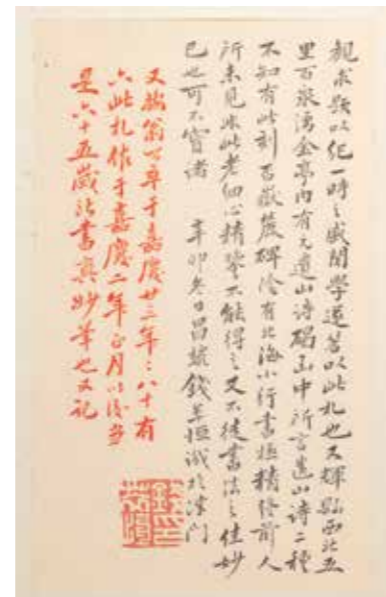 觀求題以紀一時之感閒學遵昔以此札也又輝縣西北五
里百泉湧金亭內有元遺山詩碣函中所言遺山詩二種
不知有此刻否嶽麓碑陰有北海小行書極精發前人
所未見非此老細心精鑒不能得之又不徒書法之佳妙
已也可不寶諸 辛卯冬日昌 錢葆恒識於津門
又按翁卒于嘉慶廿三年年八十有
六此札作于嘉慶二年正月以後當
是六十五歲所書真妙筆也又記